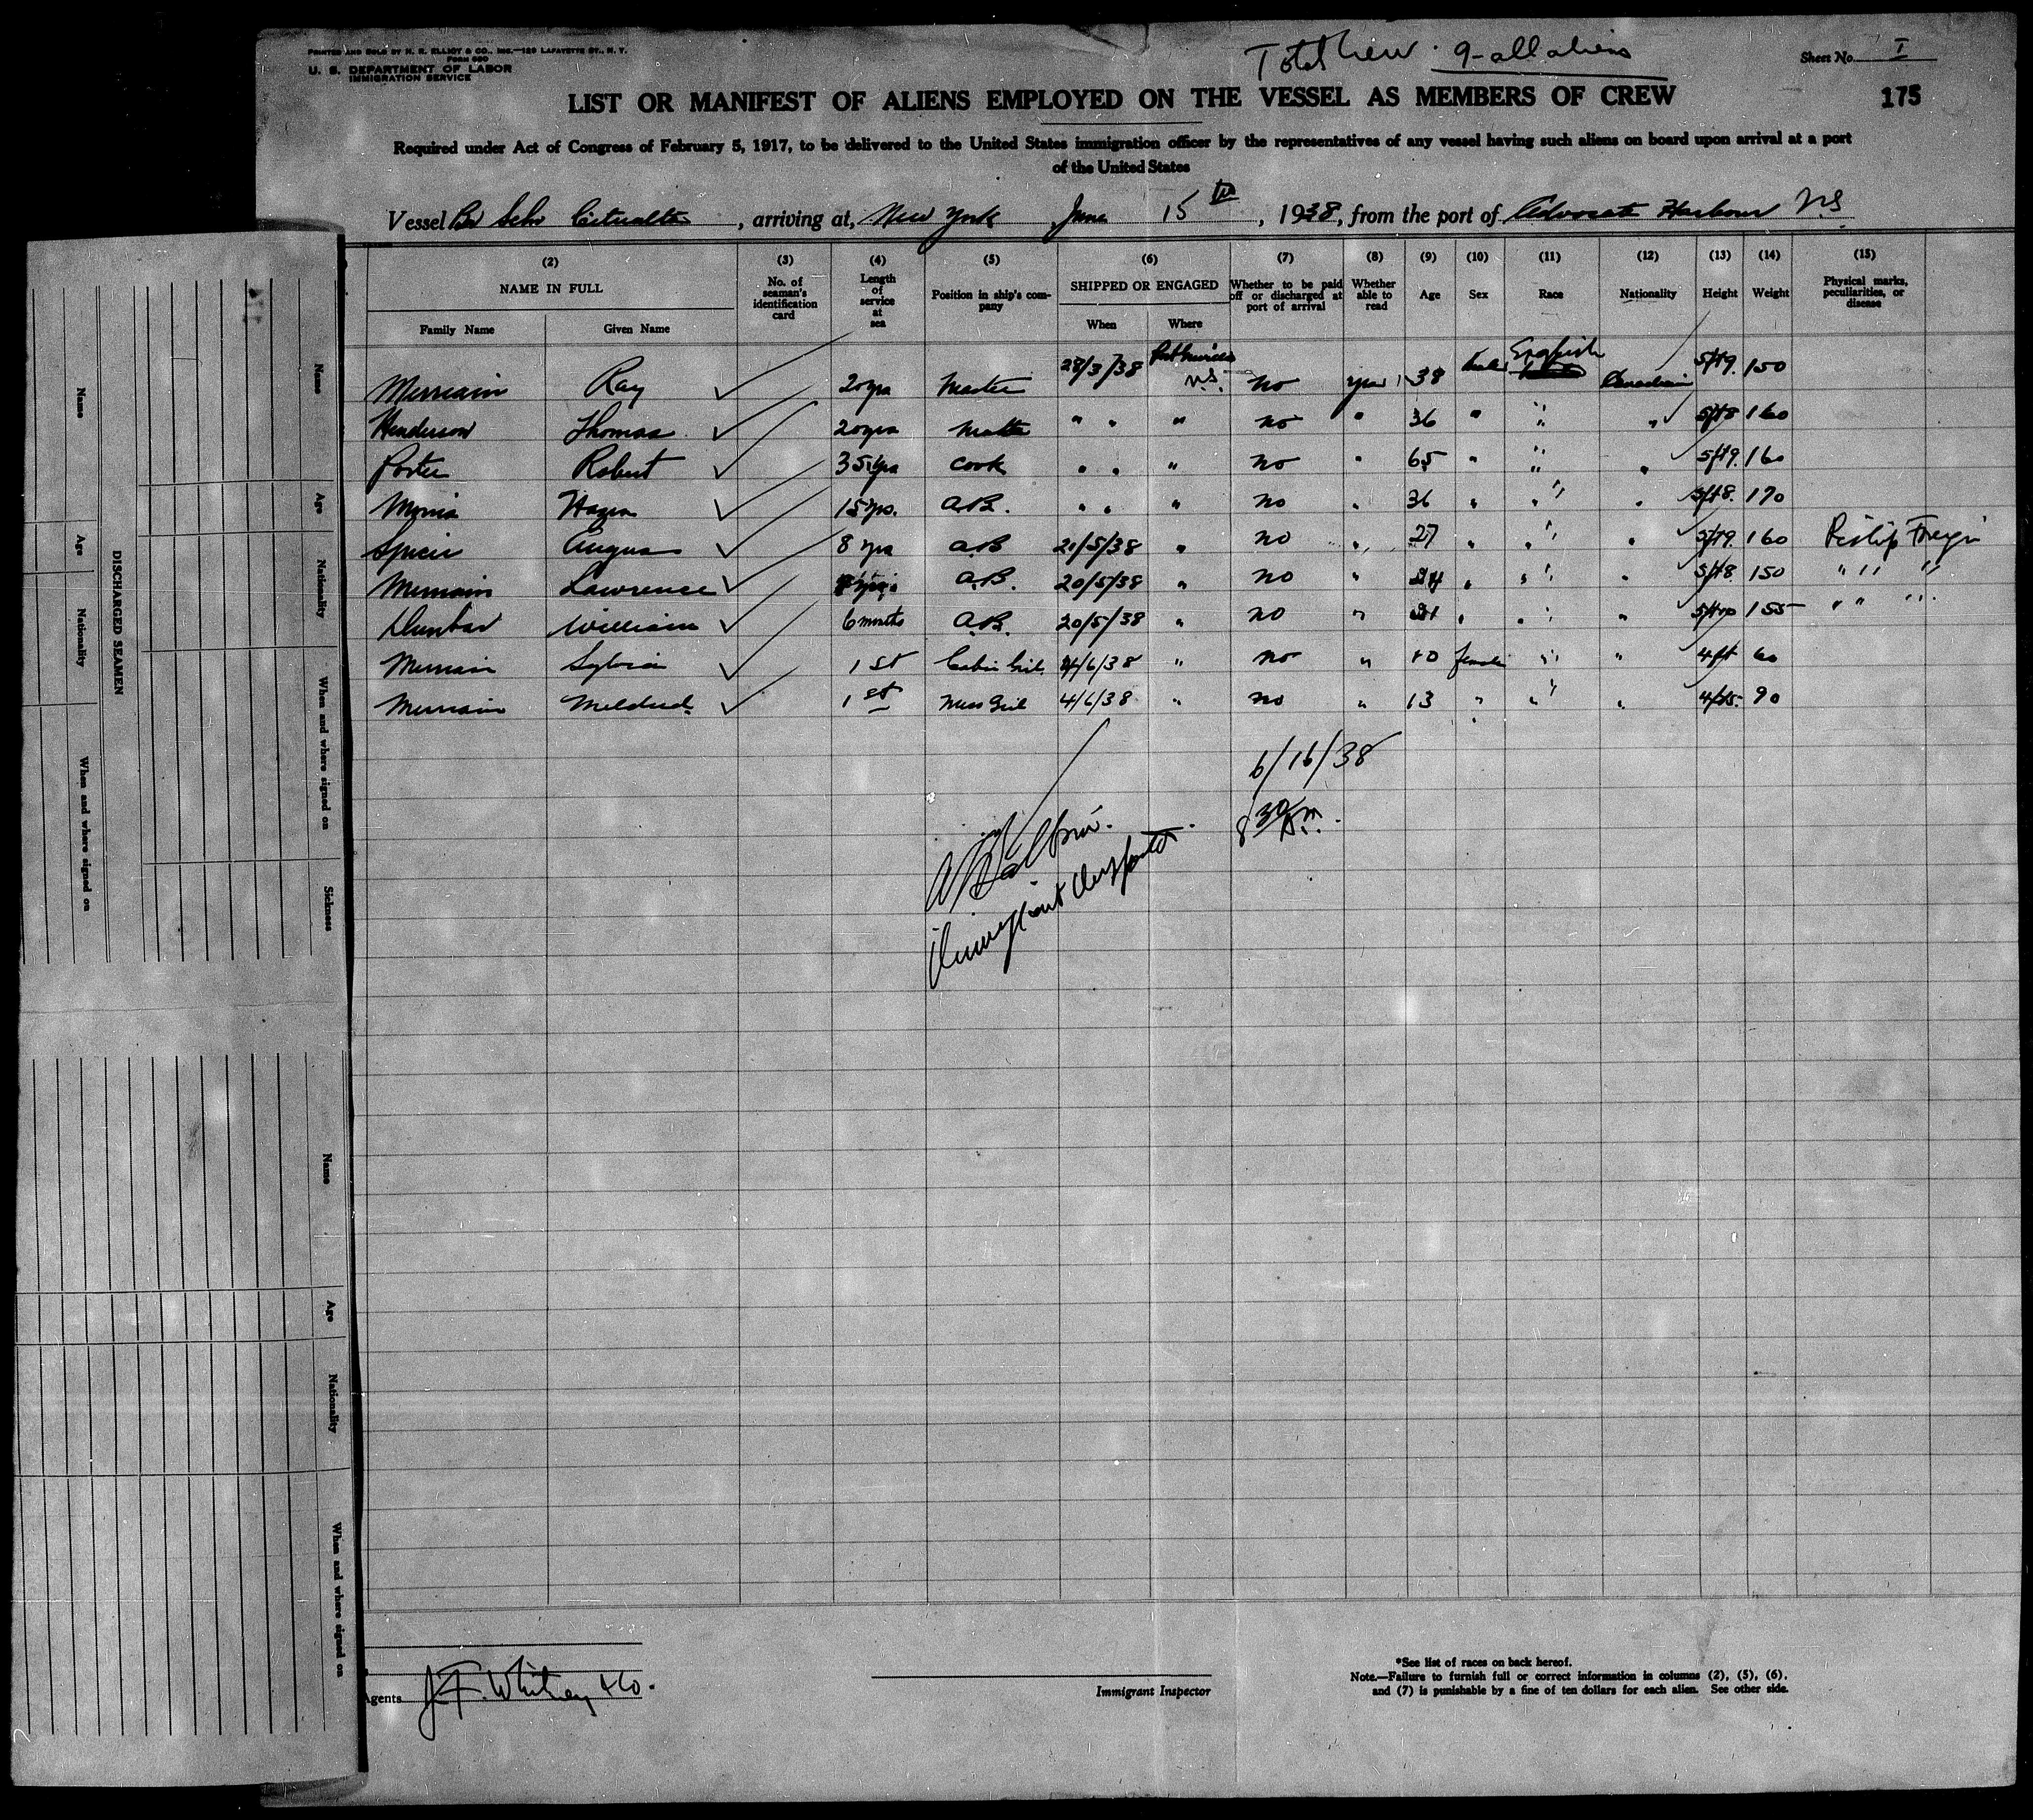 PRINTED AND SOLD BY N. R. ELLIOT & CO., INC.—129 LAFAYETTE ST., N. Y.
FORM 680
U. S. DEPARTMENT OF LABOR
IMMIGRATION SERVICE
Total Crew 9-all aliens
Sheet No. I
LIST OR MANIFEST OF ALIENS EMPLOYED ON THE VESSEL AS MEMBERS OF CREW
175
Required under Act of Congress of February 5, 1917, to be delivered to the United States immigration officer by the representatives of any vessel having such aliens on board upon arrival at a port
of the United States
Vessel Br Schr , arriving at, New York June 15 th, 1938, from the port of Advocate Harbour N.S
(2) (3) (4) (5) (6) (7) (8) (9) (10) (11) (12) (13) (14) (15)
NAME IN FULL No. of seaman's identification card Length of service at sea Position in ship's company SHIPPED OR ENGAGED Whether to be paid off or discharged at port of arrival Whether able to read Age Sex Race Nationality Height Weight Physical marks, peculiarities, or disease
Family Name Given Name When Where
Merriam Ray 20 yrs Master 28/3/38 N.S. no yes 38 male English Canadian 5ft9. 150
Henderson Thomas 20 yrs " " " no " 36 " " " 5ft8 160
Porter Robert 35 yrs Cook " " " no " 65 " " " 5ft9. 160
Hazen 15 yrs. A.B. " " " no " 36 " " " 5ft8. 170
Spicer Angus 8 yrs A.B 21/5/38 " no " 27 " " " 5ft9. 160 Foreign
Merriam Lawrence A.B. 20/5/38 " no " 24 " " " 5ft8 150 " " "
Dunbar William 6 months A.B. 20/5/38 " no " 21 " " " 5ft10 155 " " "
Merriam Sylvia 1st Cabin Girl. 4/6/38 " no " 10 female " " 4ft 60
Merriam Mildred 1st Mess Girl 4/6/38 " no " 13 " " " 90
6/16/38
8 30 A.m.
Immigrant Inspector
DISCHARGED SEAMEN
Name Age Nationality When and where signed on
Name Age Nationality When and where signed on Sickness
Name Age Nationality When and where signed on
Agents J. F. Whitney & Co.
Immigrant Inspector
*See list of races on back hereof.
Note.—Failure to furnish full or correct information in columns (2), (5), (6),
and (7) is punishable by a fine of ten dollars for each alien. See other side.